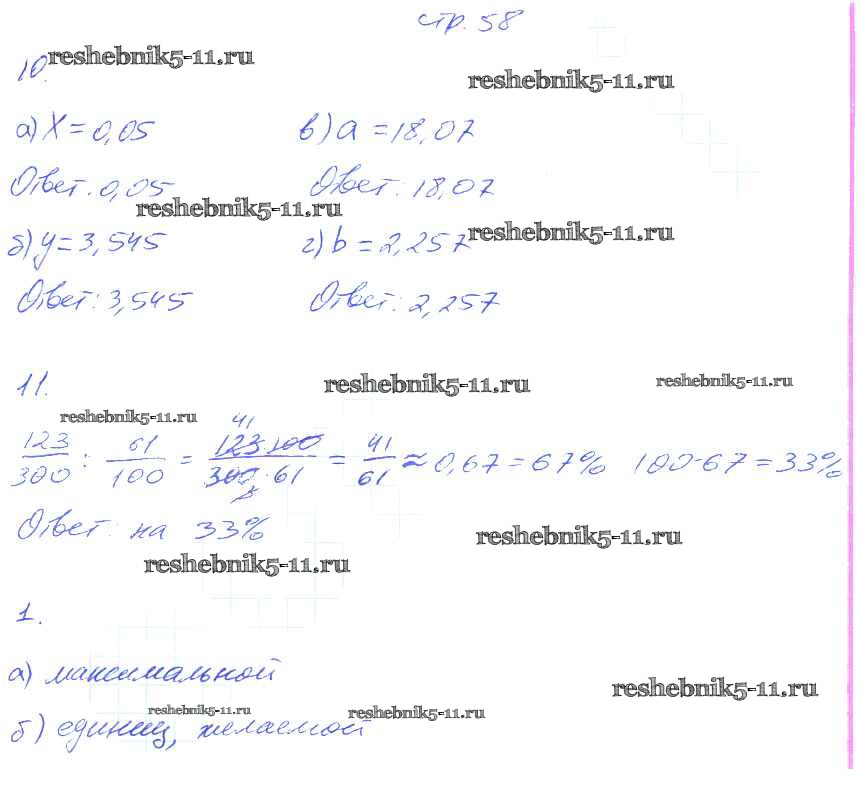 стр. 58
reshebnik5-11.ru
10.
reshebnik5-11.ru
а) x = 0,05 в) a = 18,07
Ответ. 0,05 Ответ. 18,07
reshebnik5-11.ru
б) y = 3,545 г) b = 2,257 reshebnik5-11.ru
Ответ: 3,545 Ответ: 2,257
11. reshebnik5-11.ru reshebnik5-11.ru
reshebnik5-11.ru
123/300 : 61/100 = 123·100/300·61 = 41/61 ≈ 0,67 = 67% 100-67 = 33%
Ответ: на 33%
reshebnik5-11.ru
reshebnik5-11.ru
1.
а) максимальной
reshebnik5-11.ru
reshebnik5-11.ru reshebnik5-11.ru
б) единиц, желаемой